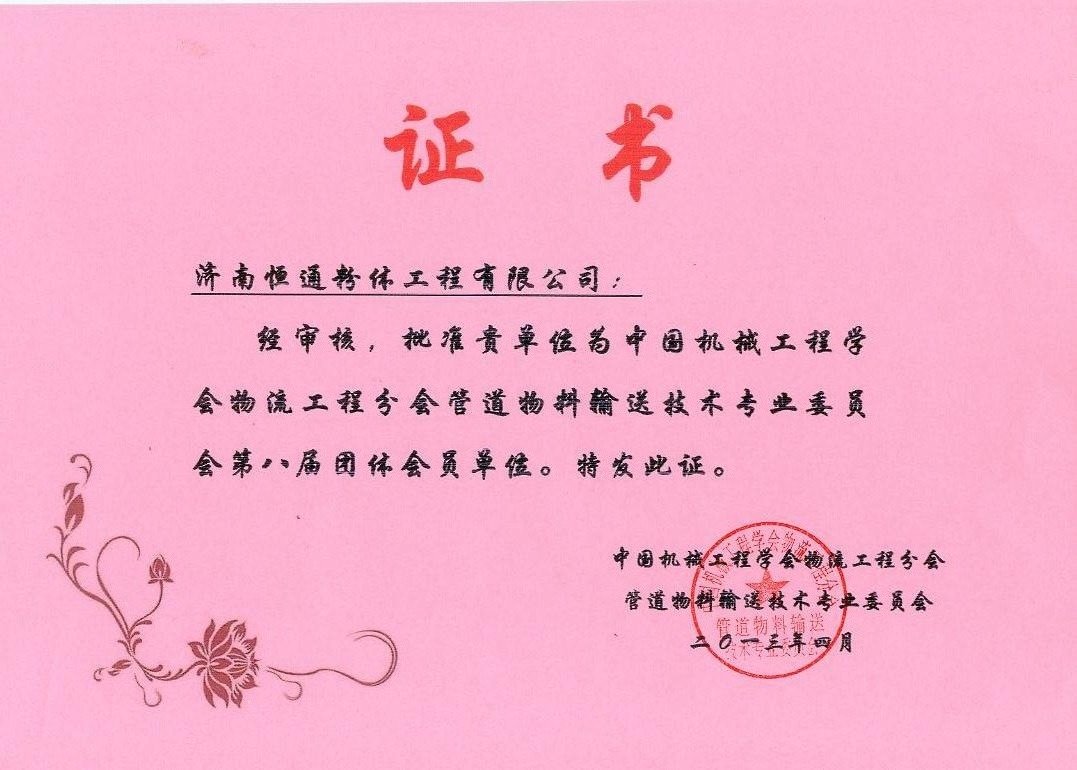 证 书
济南恒通粉体工程有限公司：
经审核，批准贵单位为中国机械工程学
会物流工程分会管道物料输送技术专业委员
会第八届团体会员单位。特发此证。
中国机械工程学会物流工程分会
管道物料输送技术专业委员会
二０一三年四月
中国机械工程学会物流工程分会
管道物料输送
技术专业委员会